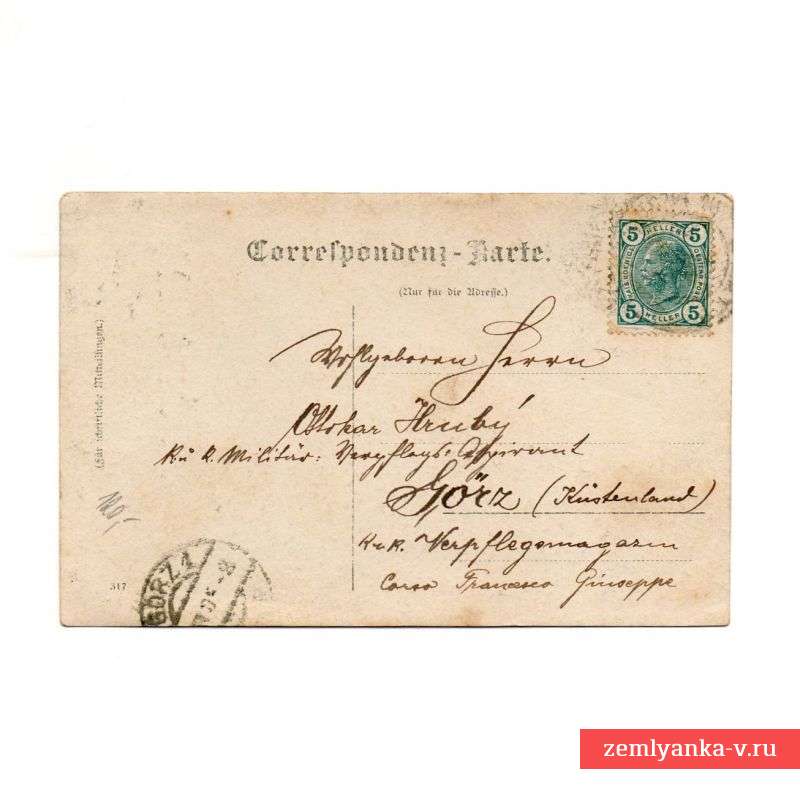 Correspondenz-Karte.
(Nur für die Adresse.)
(Für schriftliche Mitteilungen.)
5 HELLER 5
5 HELLER 5
Wohlgeboren Herrn
Ottokar Hrubý
K u k. Militär: Verpflegs: Aspirant
Görz (Küstenland)
K u k. Verpflegsmagazin
Corso Francesco Giuseppe
100,-
317
GÖRZ 1
zemlyanka-v.ru